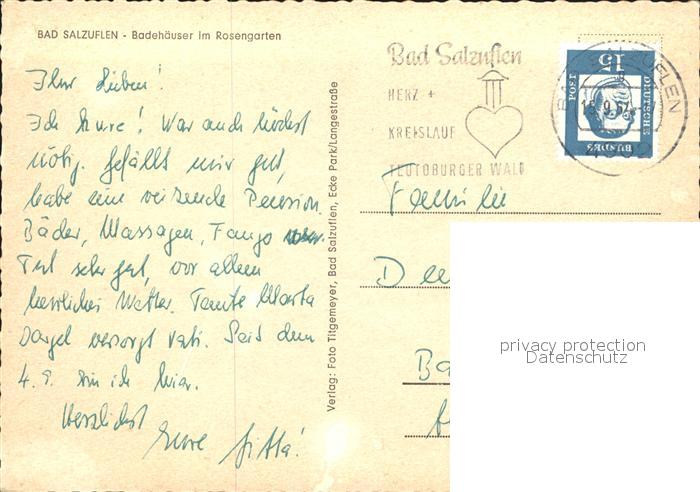 BAD SALZUFLEN - Badehäuser im Rosengarten
Ihr Lieben!
Ich kure! War auch höchst
nötig. Gefällt mir gut,
habe eine reizende Pension.
Bäder, Massagen, Fango
Tut sehr gut, vor allem
herrliches Wetter. Tante Marta
versorgt Vati. Seit dem
4. 9. bin ich hier.
Herzlichst
Eure Gitta!
Verlag: Foto Titgemeyer, Bad Salzuflen, Ecke Park/Langestraße
Bad Salzuflen
HERZ +
KREISLAUF
TEUTOBURGER WALD
15
DEUTSCHE
BUNDES
POST
SALZUFLEN
4902
Familie
privacy protection
Datenschutz